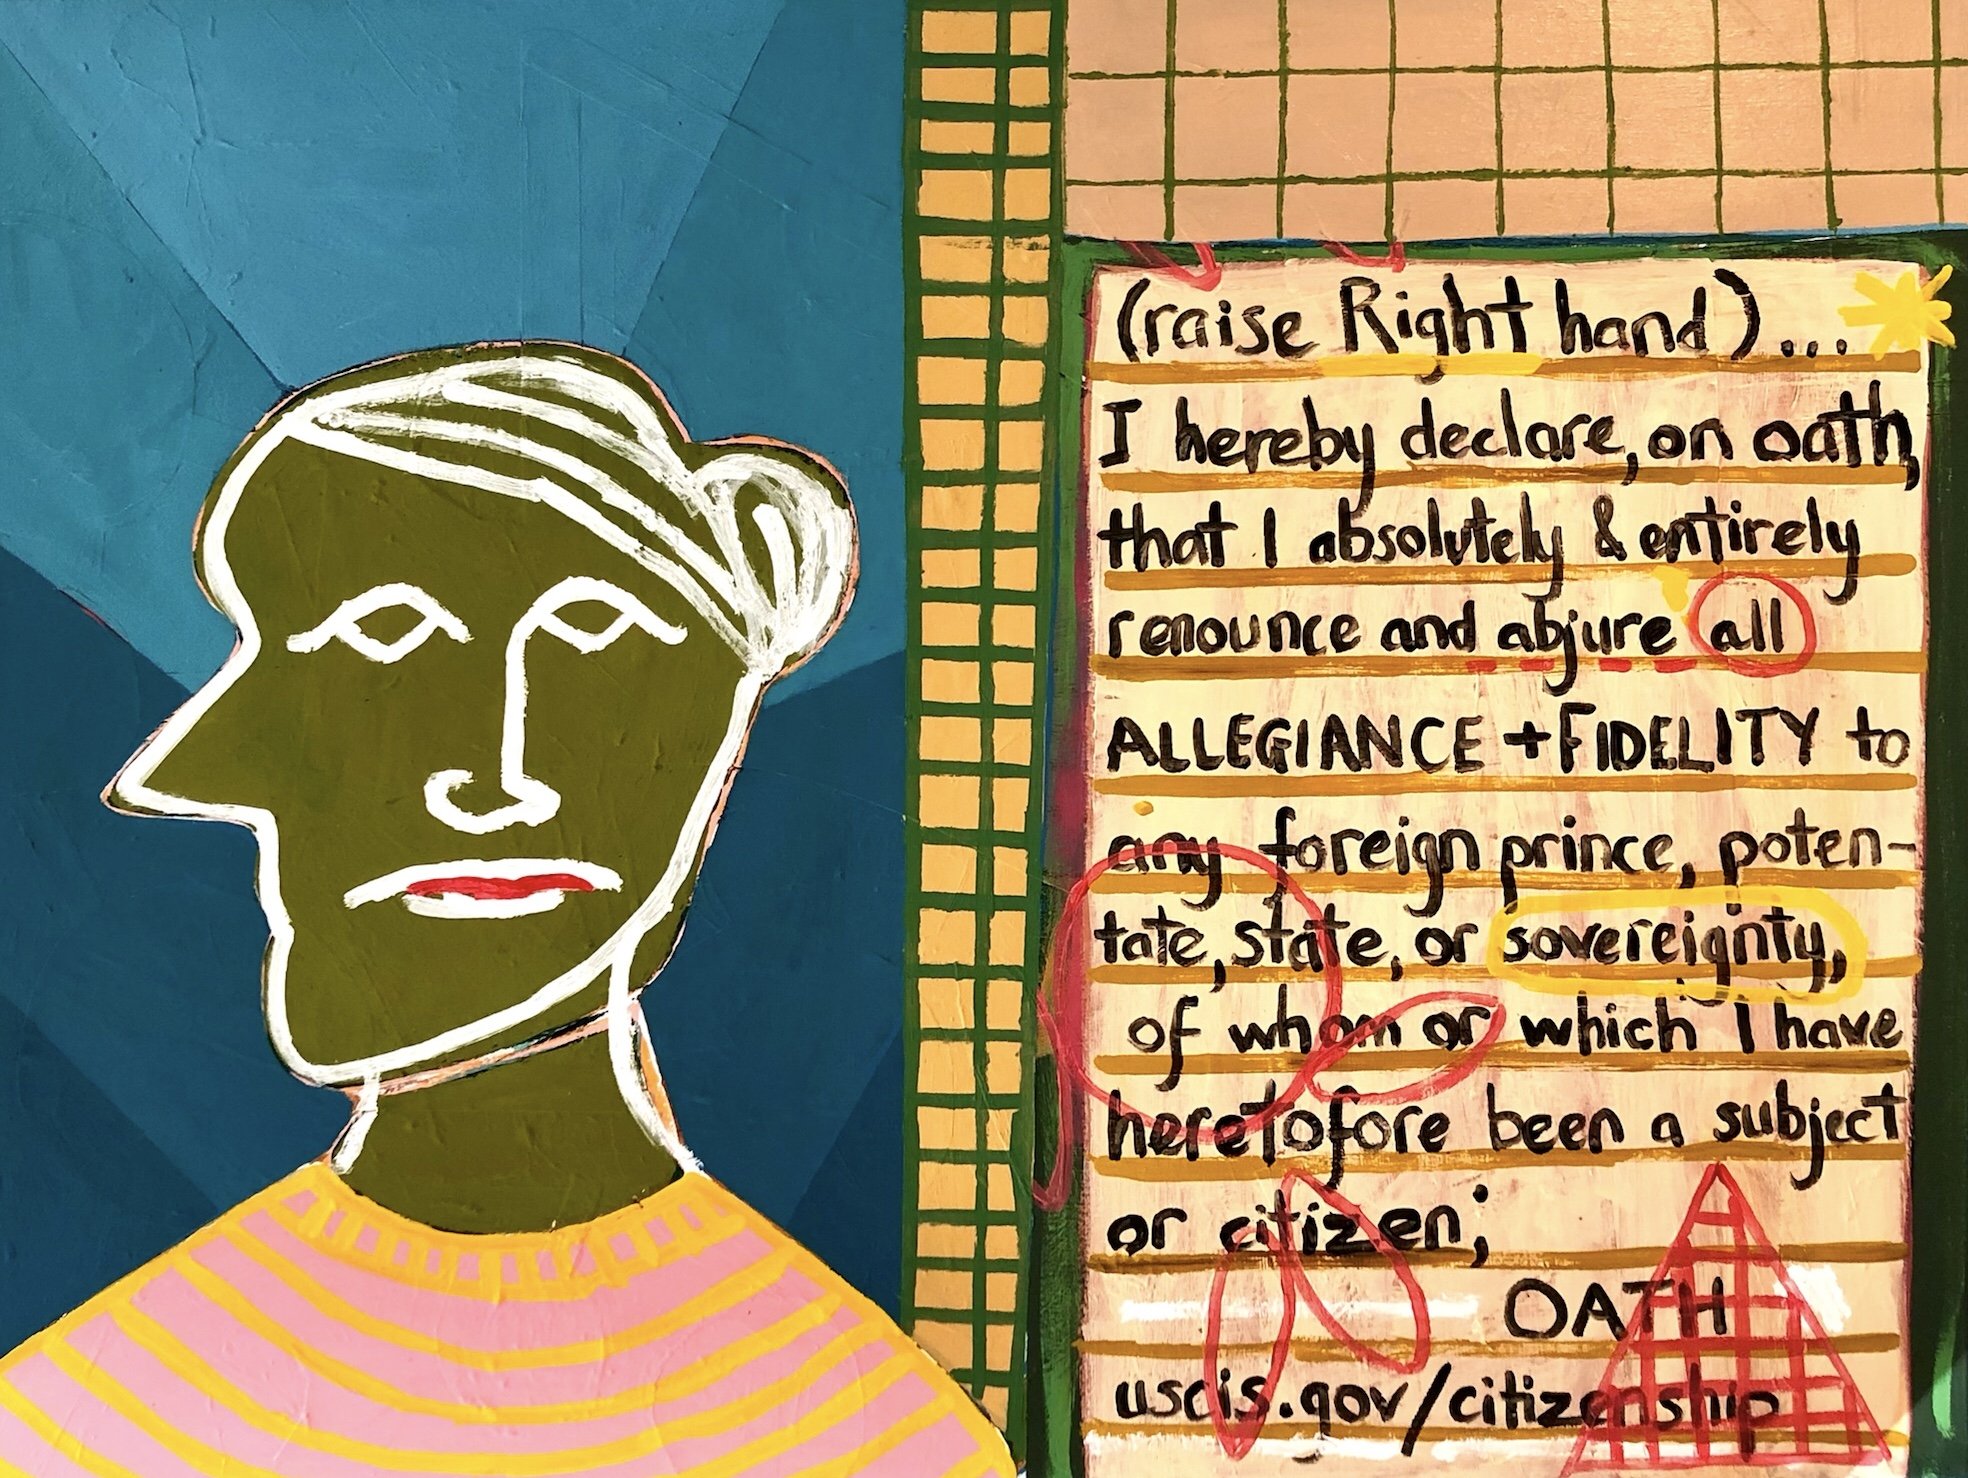 (raise Right hand)...
I hereby declare, on oath,
that I absolutely & entirely
renounce and abjure all
ALLEGIANCE + FIDELITY to
any foreign prince, poten-
tate, state, or sovereignty,
of whom or which I have
heretofore been a subject
or citizen;
OATH
uscis.gov/citizenship